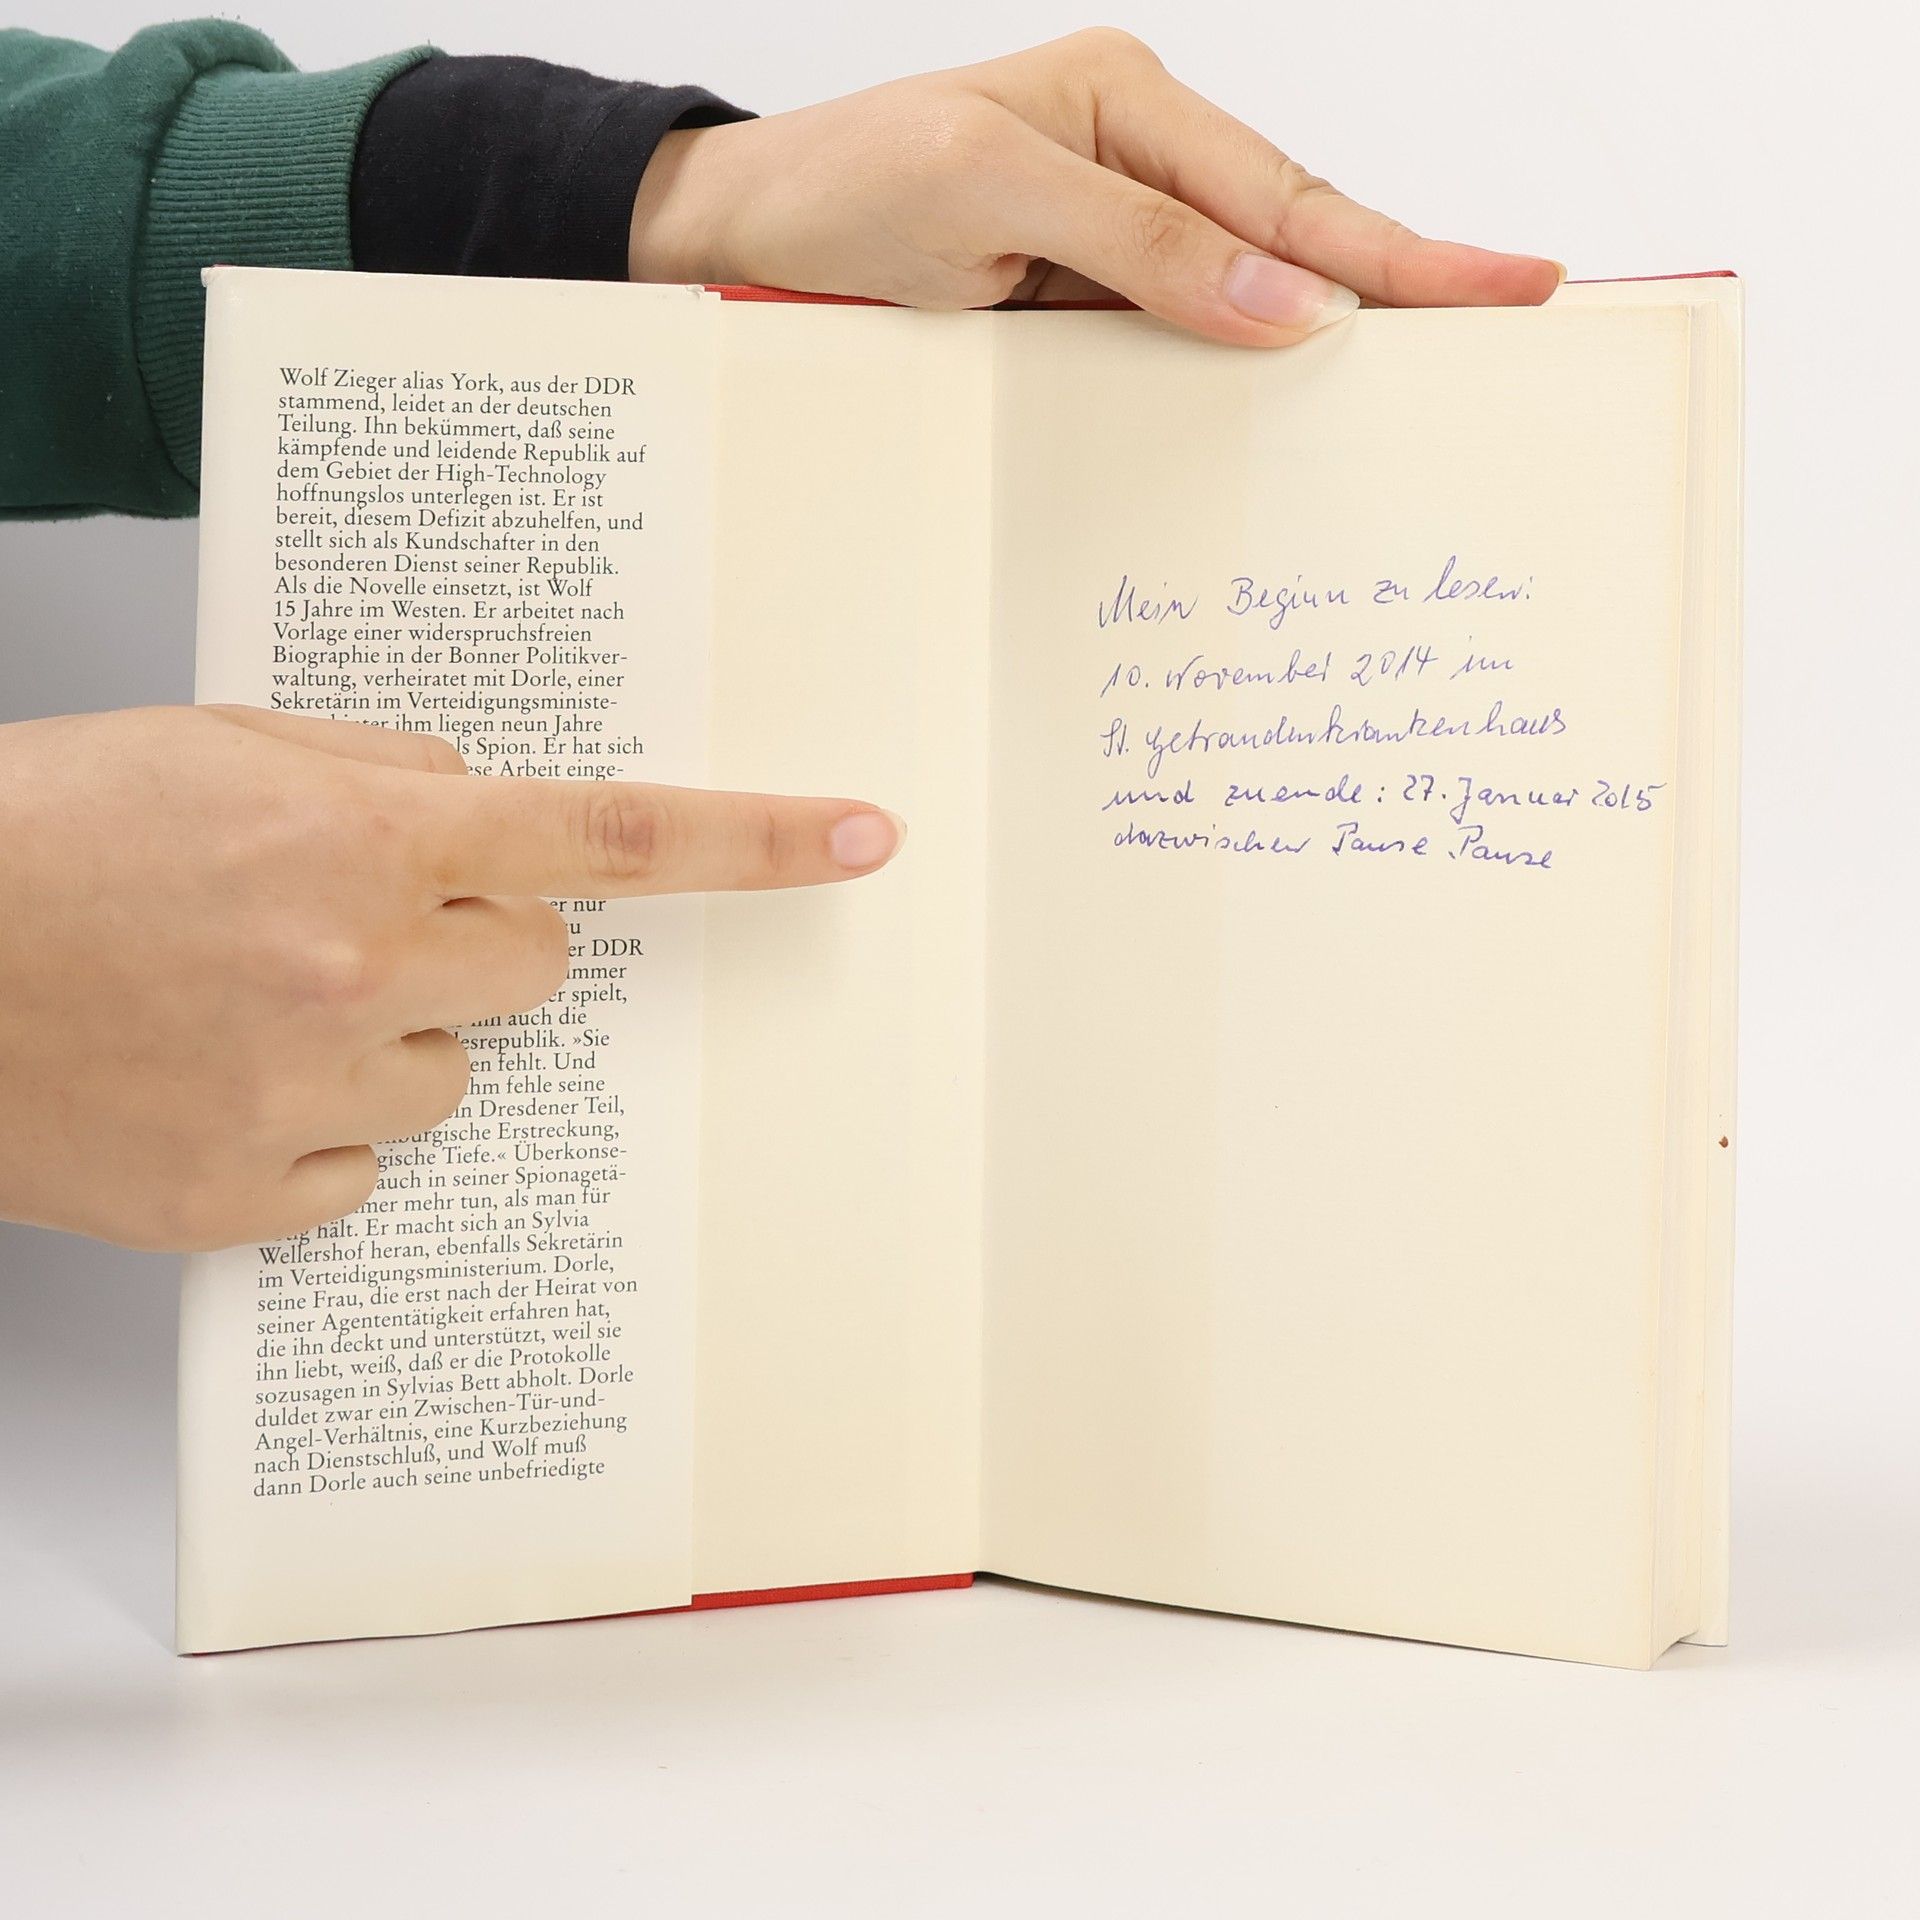 Wolf Zieger alias York, aus der DDR
stammend, leidet an der deutschen
Teilung. Ihn bekümmert, daß seine
kämpfende und leidende Republik auf
dem Gebiet der High-Technology
hoffnungslos unterlegen ist. Er ist
bereit, diesem Defizit abzuhelfen, und
stellt sich als Kundschafter in den
besonderen Dienst seiner Republik.
Als die Novelle einsetzt, ist Wolf
15 Jahre im Westen. Er arbeitet nach
Vorlage einer widerspruchsfreien
Biographie in der Bonner Politikver-
waltung, verheiratet mit Dorle, einer
Sekretärin im Verteidigungsministe-
ihm liegen neun Jahre
Spion. Er hat sich
Arbeit einge-
nur
DDR
spielt,
auch die
»Sie
fehlt. Und
fehle seine
Dresdener Teil,
Erstreckung,
Tiefe.« Überkonse-
auch in seiner Spionagetä-
mehr tun, als man für
hält. Er macht sich an Sylvia
Wellershof heran, ebenfalls Sekretärin
im Verteidigungsministerium. Dorle,
seine Frau, die erst nach der Heirat von
seiner Agententätigkeit erfahren hat,
die ihn deckt und unterstützt, weil sie
ihn liebt, weiß, daß er die Protokolle
sozusagen in Sylvias Bett abholt. Dorle
duldet zwar ein Zwischen-Tür-und-
Angel-Verhältnis, eine Kurzbeziehung
nach Dienstschluß, und Wolf muß
dann Dorle auch seine unbefriedigte
Mein Beginn zu lesen:
10. November 2014 im
St.
und zuende: 27. Januar 2015
dazwischen Pause Pause